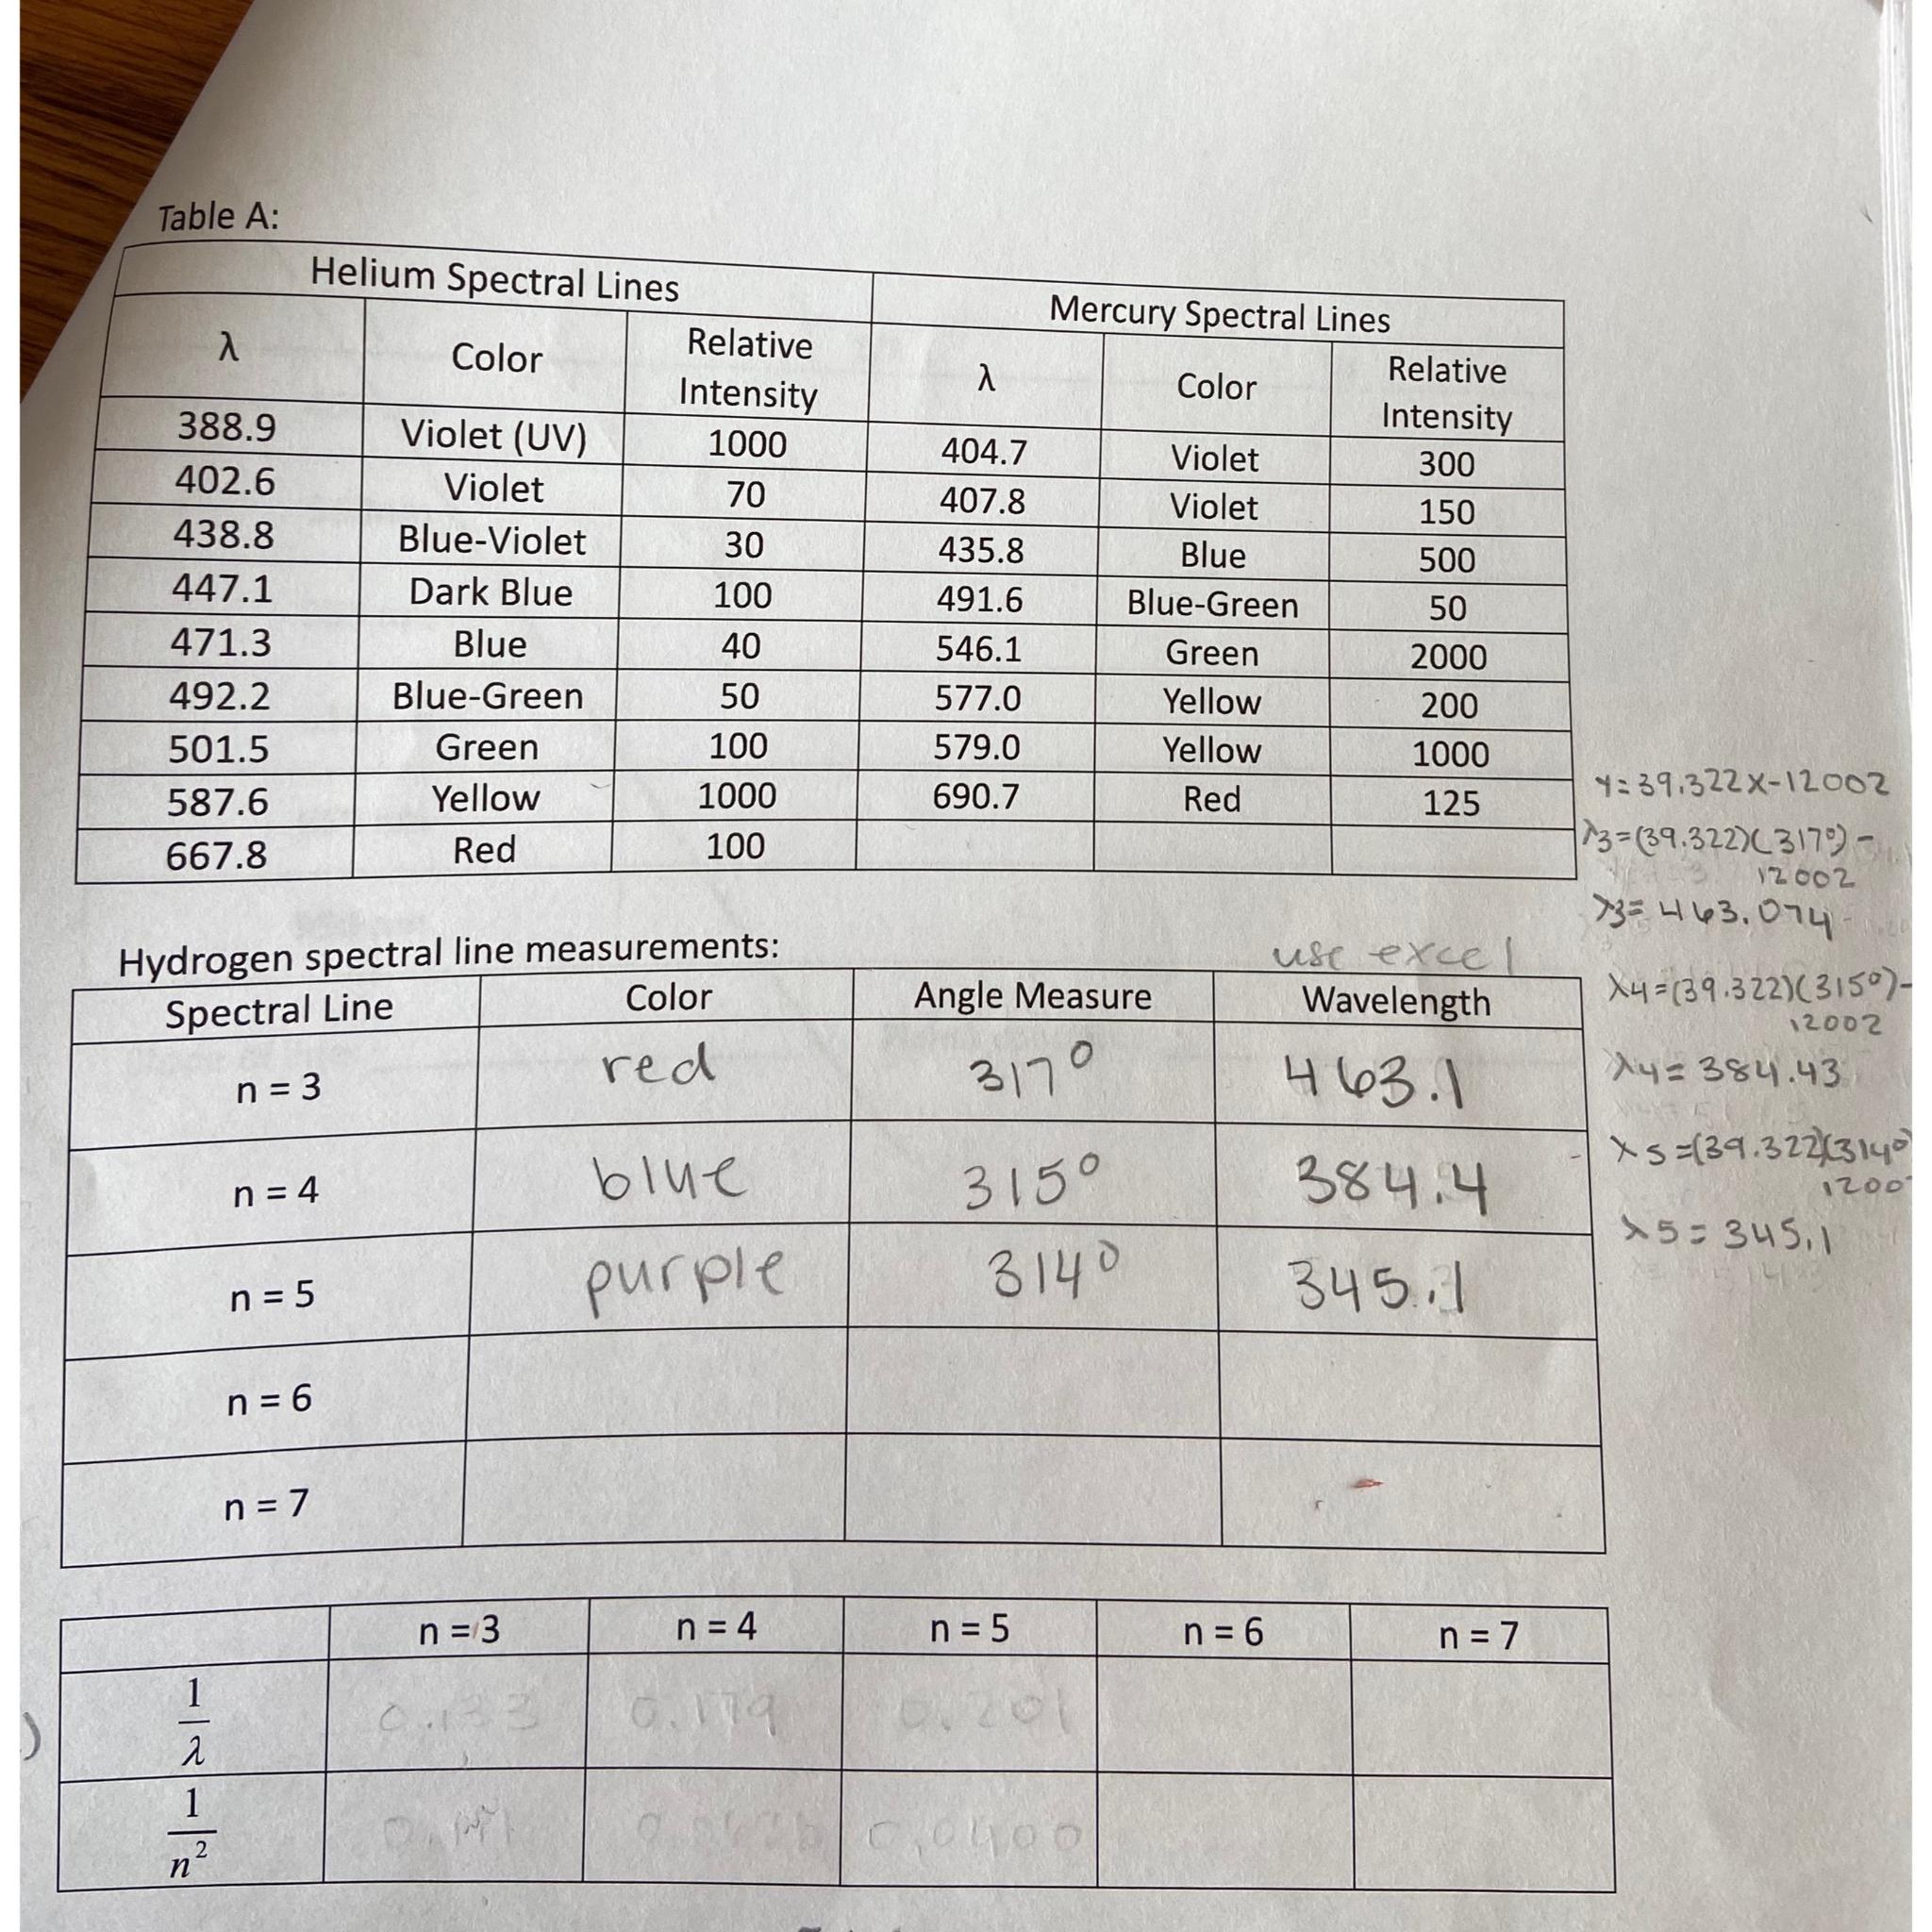 Table A:
Helium Spectral Lines Mercury Spectral Lines
λ Color Relative Intensity λ Color Relative Intensity
388.9 Violet (UV) 1000 404.7 Violet 300
402.6 Violet 70 407.8 Violet 150
438.8 Blue-Violet 30 435.8 Blue 500
447.1 Dark Blue 100 491.6 Blue-Green 50
471.3 Blue 40 546.1 Green 2000
492.2 Blue-Green 50 577.0 Yellow 200
501.5 Green 100 579.0 Yellow 1000
587.6 Yellow 1000 690.7 Red 125
667.8 Red 100
y=39.322x-12002
λ3=(39.322)(317°)-
12002
λ3=463.074
Hydrogen spectral line measurements:
use excel
Spectral Line Color Angle Measure Wavelength
n = 3 red 317° 463.1
n = 4 blue 315° 384.4
n = 5 purple 314° 345.1
n = 6
n = 7
λ4=(39.322)(315°)-
12002
λ4=384.43
λ5=(39.322)(314°
1200
λ5=345.1
n = 3 n = 4 n = 5 n = 6 n = 7
1/λ 0.133 0.179 0.201
1/n² 0.0400